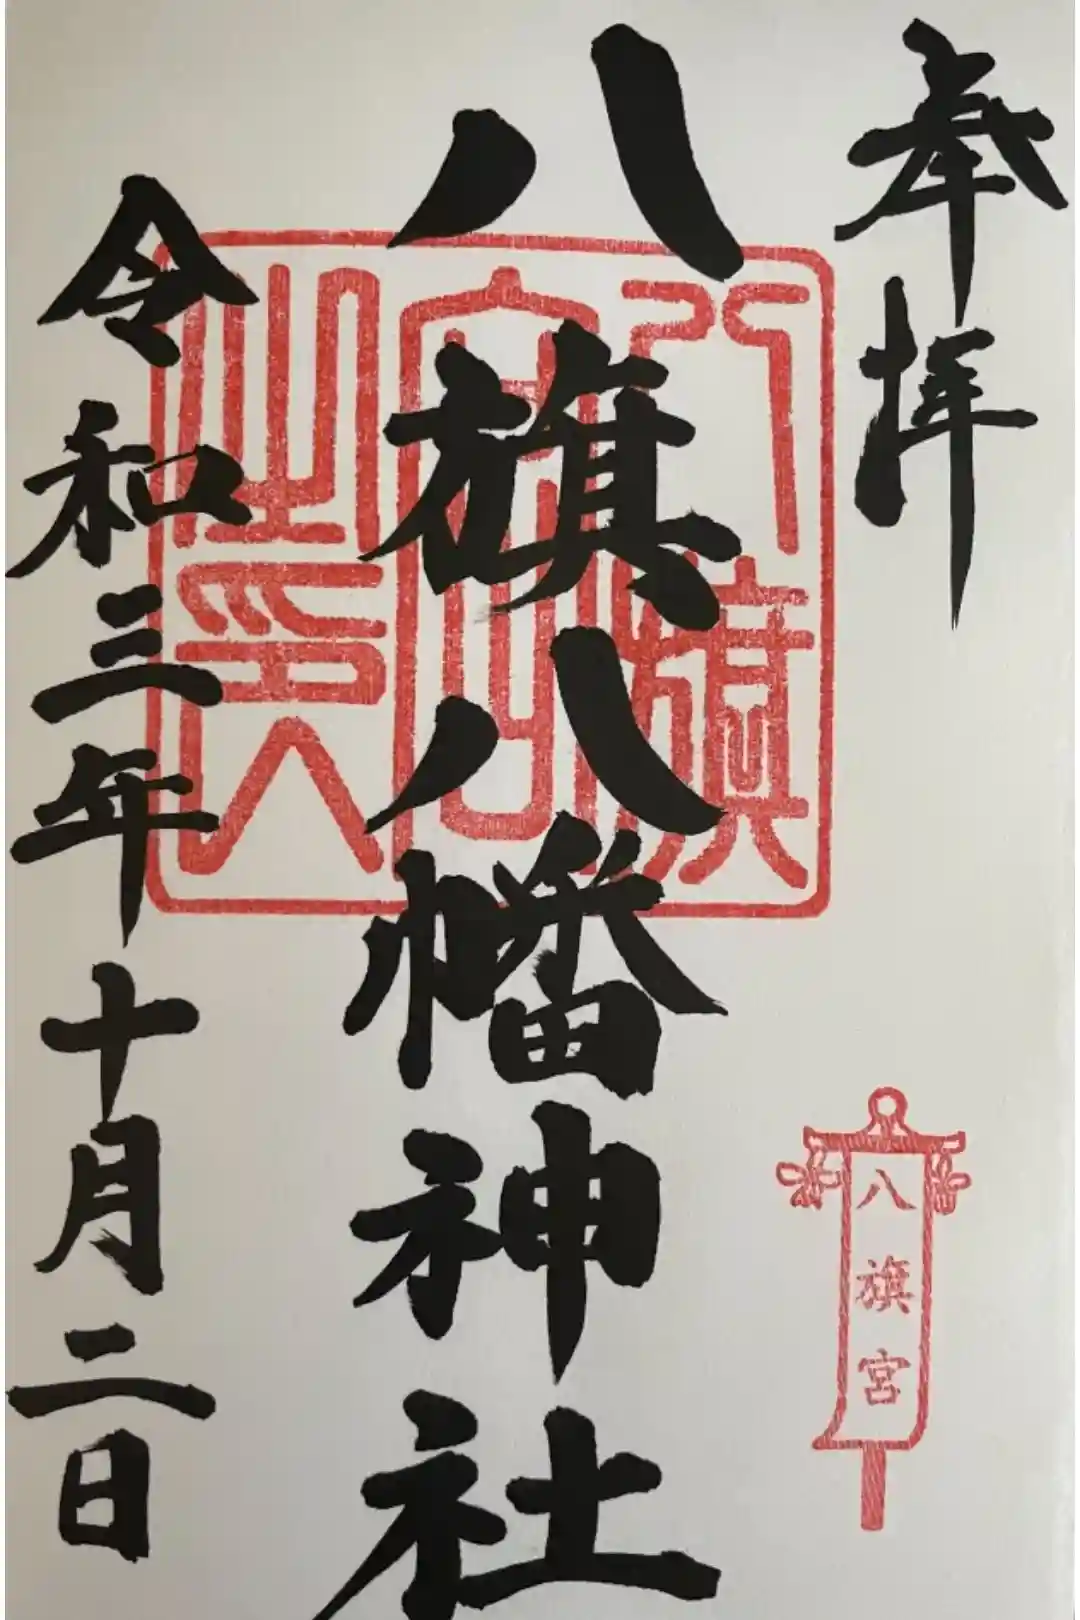 奉拝
八旗八幡神社
令和三年十月二日
八旗宮之印
八旗宮